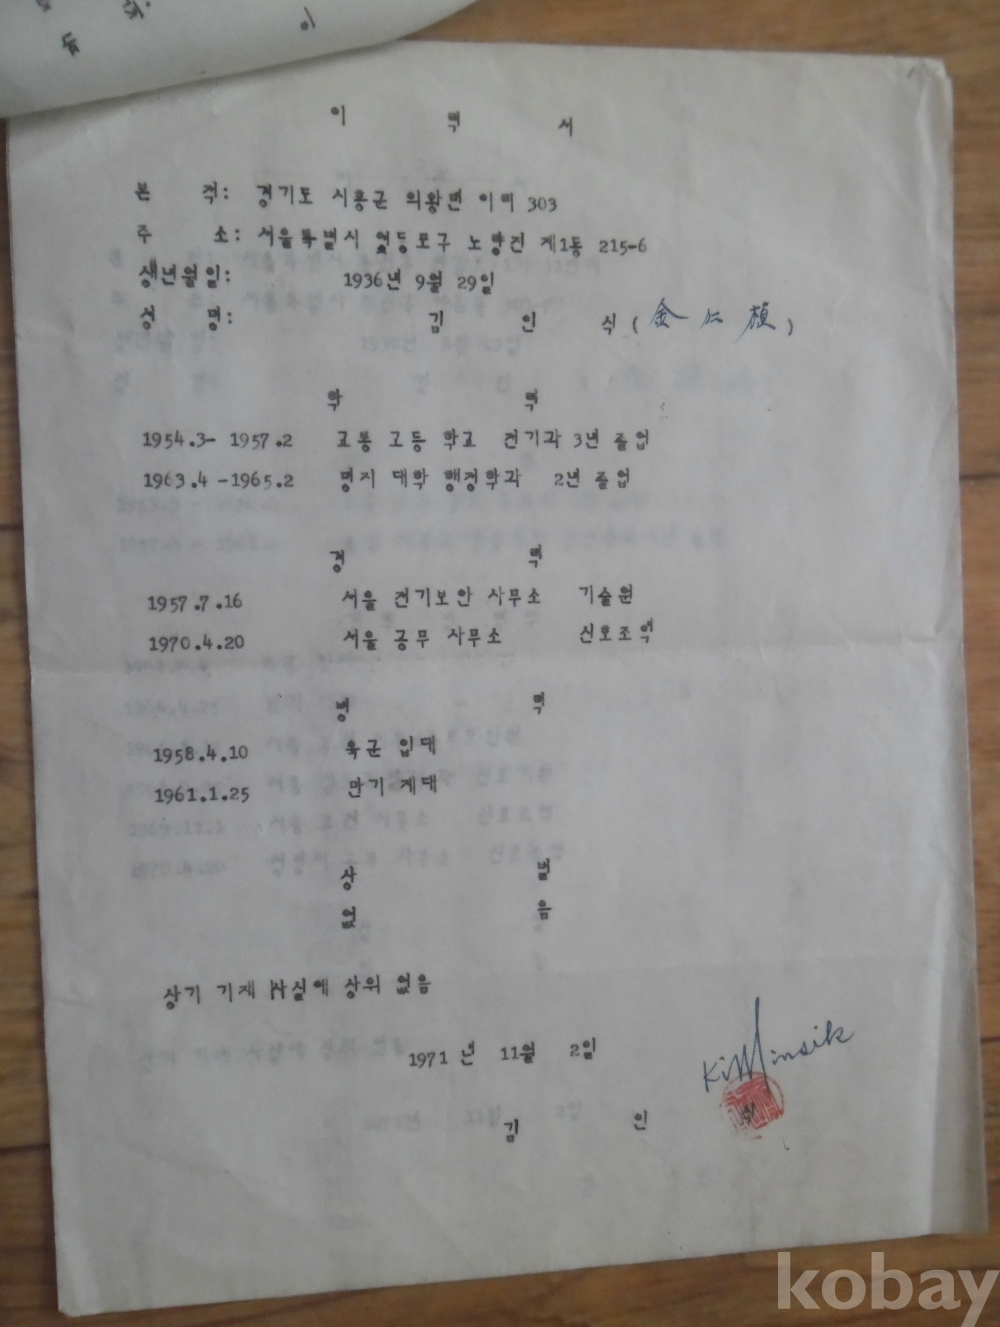 이 력 서
본 적: 경기도 시흥군 의왕면 이리 303
주 소: 서울특별시 영등포구 노량진 제1동 215-6
생년월일: 1936년 9월 29일
성 명: 김 인 식 (金仁植)
학 력
1954.3- 1957.2 교통 고등 학교 전기과 3년 졸업
1963.4 -1965.2 명지 대학 행정학과 2년 졸업
경 력
1957.7.16 서울 전기보안 사무소 기술원
1970.4.20 서울 공무 사무소 신호조역
병 력
1958.4.10 육군 입대
1961.1.25 만기 제대
상 벌
없 음
상기 기재 사실에 상위 없음
1971 년 11월 2일
Kim insik
김 인 식
kobay